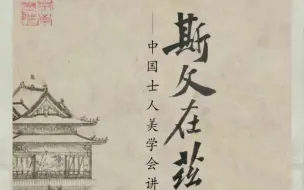 斯文在兹
——中国士人美学会讲